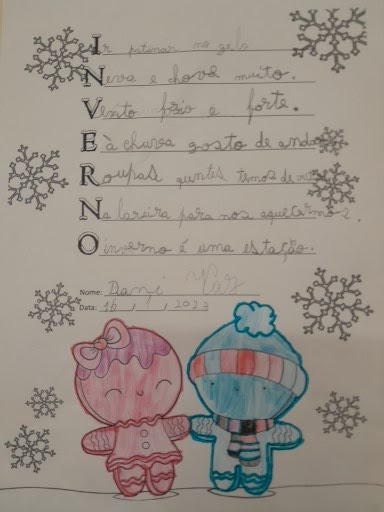 Ir patinar no gelo
Neva e chove muito.
Vento frio e forte.
E à chuva gosto de andar
Roupas quentes temos de
Na lareira para nos aquecermos.
O inverno é uma estação.
Nome: Dani Vaz
Data: 16 / / 2023